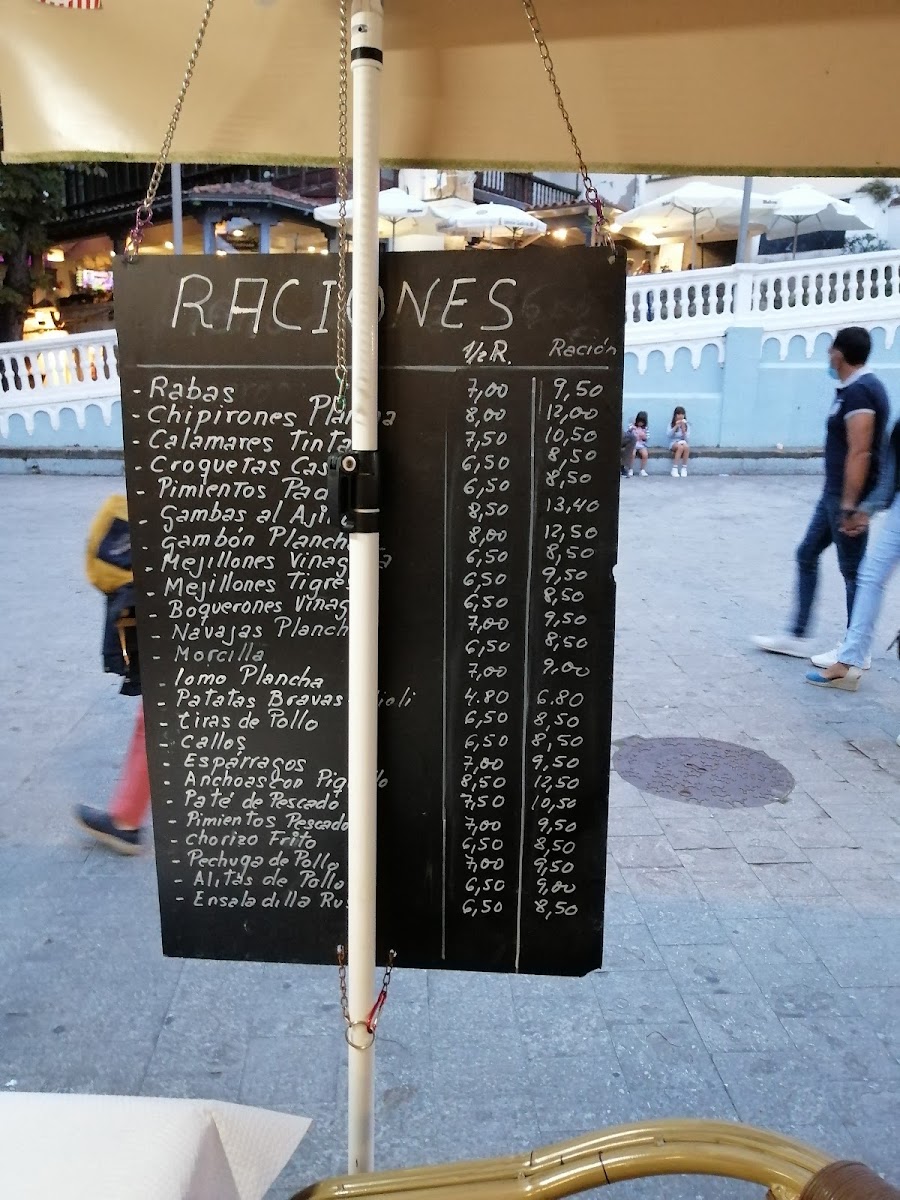 RACIONES
1/2 R. Ración
- Rabas 7,00 9,50
- Chipirones Plancha 8,00 12,00
- Calamares Tinta 7,50 10,50
- Croquetas Cas 6,50 8,50
- Pimientos Pad 6,50 8,50
- Gambas al Ajillo 8,50 13,40
- Gambón Plancha 8,00 12,50
- Mejillones Vinagreta 6,50 8,50
- Mejillones Tigres 6,50 9,50
- Boquerones Vinag 6,50 8,50
- Navajas Plancha 7,00 9,50
- Morcilla 6,50 8,50
- lomo Plancha 7,00 9.00
- Patatas Bravas Alioli 4.80 6.80
- tiras de Pollo 6,50 8,50
- Callos 6,50 8,50
- Espárragos 7,00 9,50
- Anchoas con Piquillo 8,50 12,50
- Paté de Pescado 7,50 10,50
- Pimientos Pescado 7,00 9,50
- chorizo Frito 6,50 8,50
- Pechuga de Pollo 7,00 9,50
- Alitas de Pollo 6,50 9,00
- Ensaladilla Rus 6,50 8,50